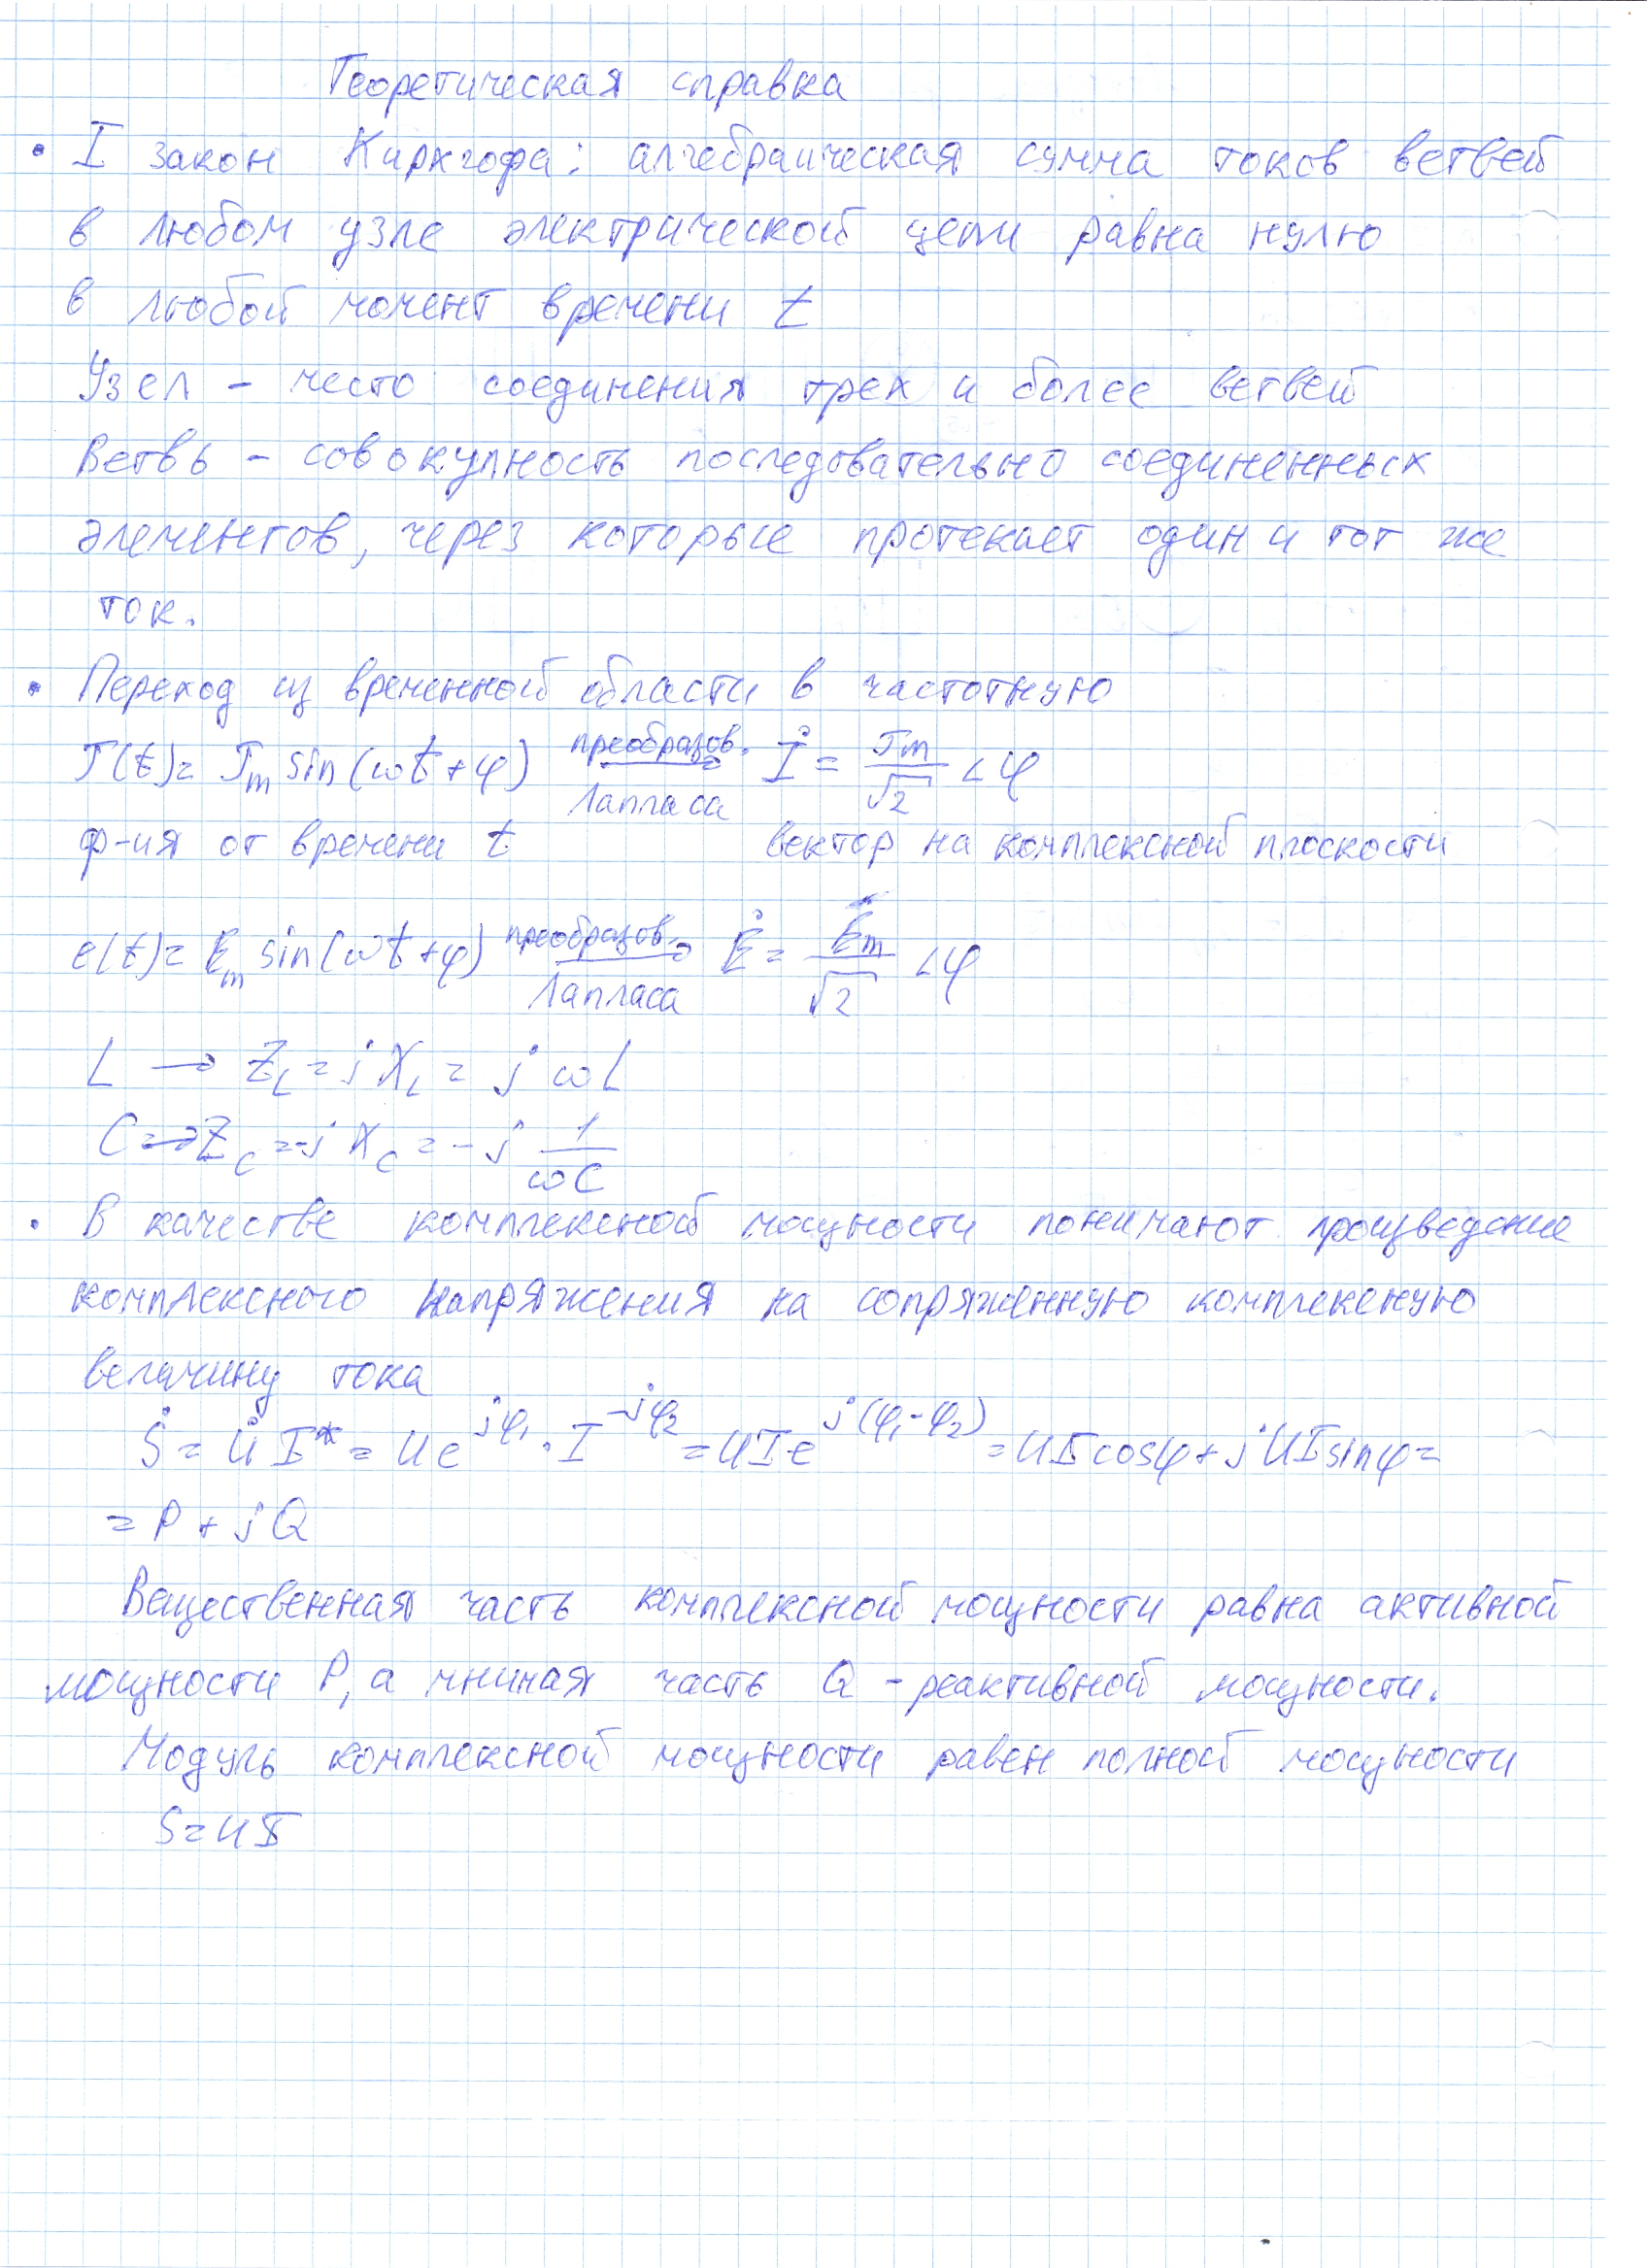 Теоретическая справка
• I закон Кирхгофа: алгебраическая сумма токов ветвей
в любом узле электрической цепи равна нулю
в любой момент времени t
Узел - место соединения трех и более ветвей
Ветвь - совокупность последовательно соединенных
элементов, через которые протекает один и тот же
ток.
• Переход из временной области в частотную
J(t)= Jm sin(ωt+φ) преобразов. Лапласа → İ = Jm/√2 ∠φ
ф-ия от времени t вектор на комплексной плоскости
e(t)= Em sin(ωt+φ) преобразов. Лапласа → Ė = Em/√2 ∠φ
L → ZL = jXL = jωL
C → ZC = -jXC = -j 1/ωC
• В качестве комплексной мощности понимают произведение
комплексного напряжения на сопряженную комплексную
величину тока
Ṡ = U̇ I* = Ue^jφ₁ · I^-jφ₂ = UIe^j(φ₁-φ₂) = UI cosφ + jUI sinφ =
= P + jQ
Вещественная часть комплексной мощности равна активной
мощности P, а мнимая часть Q - реактивной мощности.
Модуль комплексной мощности равен полной мощности
S=UI